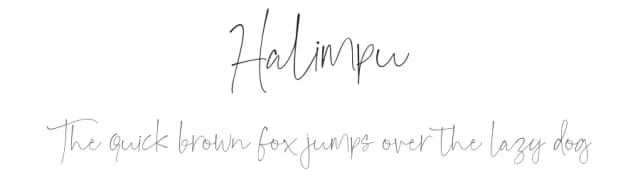 Halimpu
The quick brown fox jumps over the lazy dog